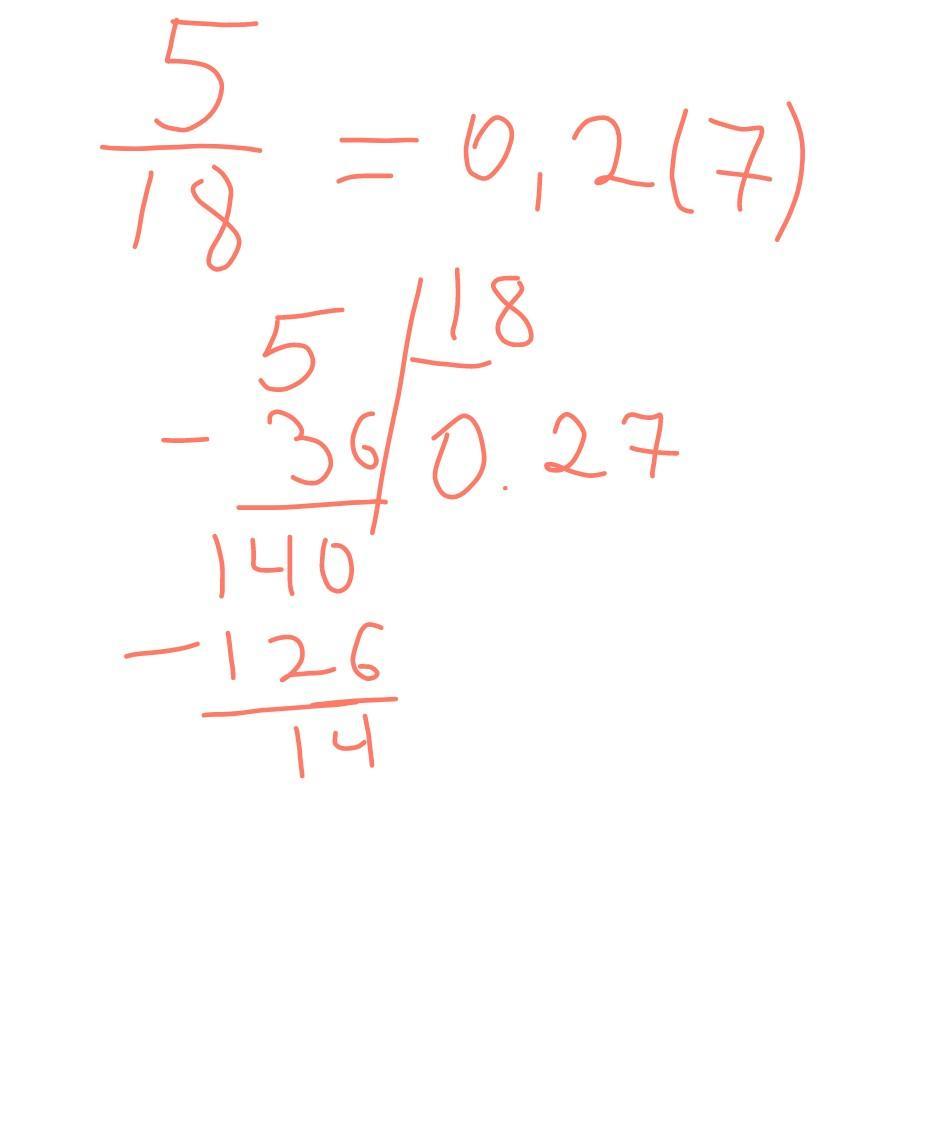 5/18 = 0,2(7)
5 | 18
- 36 | 0.27
140
- 126
14